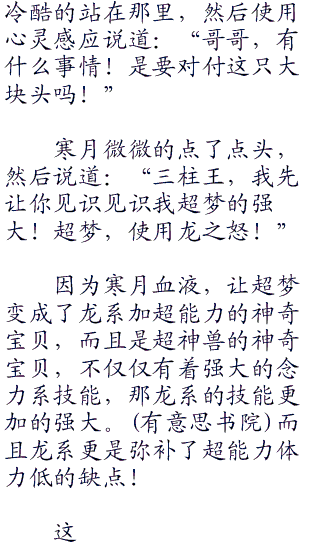 冷酷的站在那里，然后使用
心灵感应说道：“哥哥，有
什么事情！是要对付这只大
块头吗！”
寒月微微的点了点头，
然后说道：“三柱王，我先
让你见识见识我超梦的强
大！超梦，使用龙之怒！”
因为寒月血液，让超梦
变成了龙系加超能力的神奇
宝贝，而且是超神兽的神奇
宝贝，不仅仅有着强大的念
力系技能，那龙系的技能更
加的强大。(有意思书院)而
且龙系更是弥补了超能力体
力低的缺点！
这